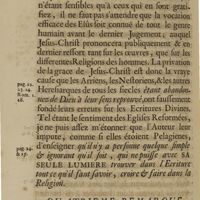 n'étant sensibles qu'à ceux qui en sont grati-
fiez, il ne faut pas s'attendre que la vocation
efficace des Elûs soit connuë de tout le genre
humain avant le dernier Jugement; auquel
Jesus-Christ prononcera publiquement & en
dernier ressort tant sur les œuvres, que sur les
différentes Religions des hommes. La privation
de la grace de Jesus-Christ est donc la vraye
cause que les Arriens, les Nestoriens, & les autres
Heresiarques de tous les siecles étant abandon-
nez de Dieu à leur sens reprouvé, ont faussement
fondé leurs erreurs sur les Ecritures Divines.
Tel étant le sentiment des Eglises Reformées,
je ne puis assez m'étonner que l'Auteur leur
impute, comme si elles étoient Pelagienes,
d'enseigner qu'il n'y a personne quelque simple
& ignorant qu'il soit, qui ne puisse avec SA
SEULE LUMIERE trouver dans l'Ecriture
tout ce qu'il faut savoir, croire & faire dans la
Religion.
pag. 22.
23. 24.
Rom. 1.
28.
pag. 24.
& 25.
QUATRIEME REMARQUE